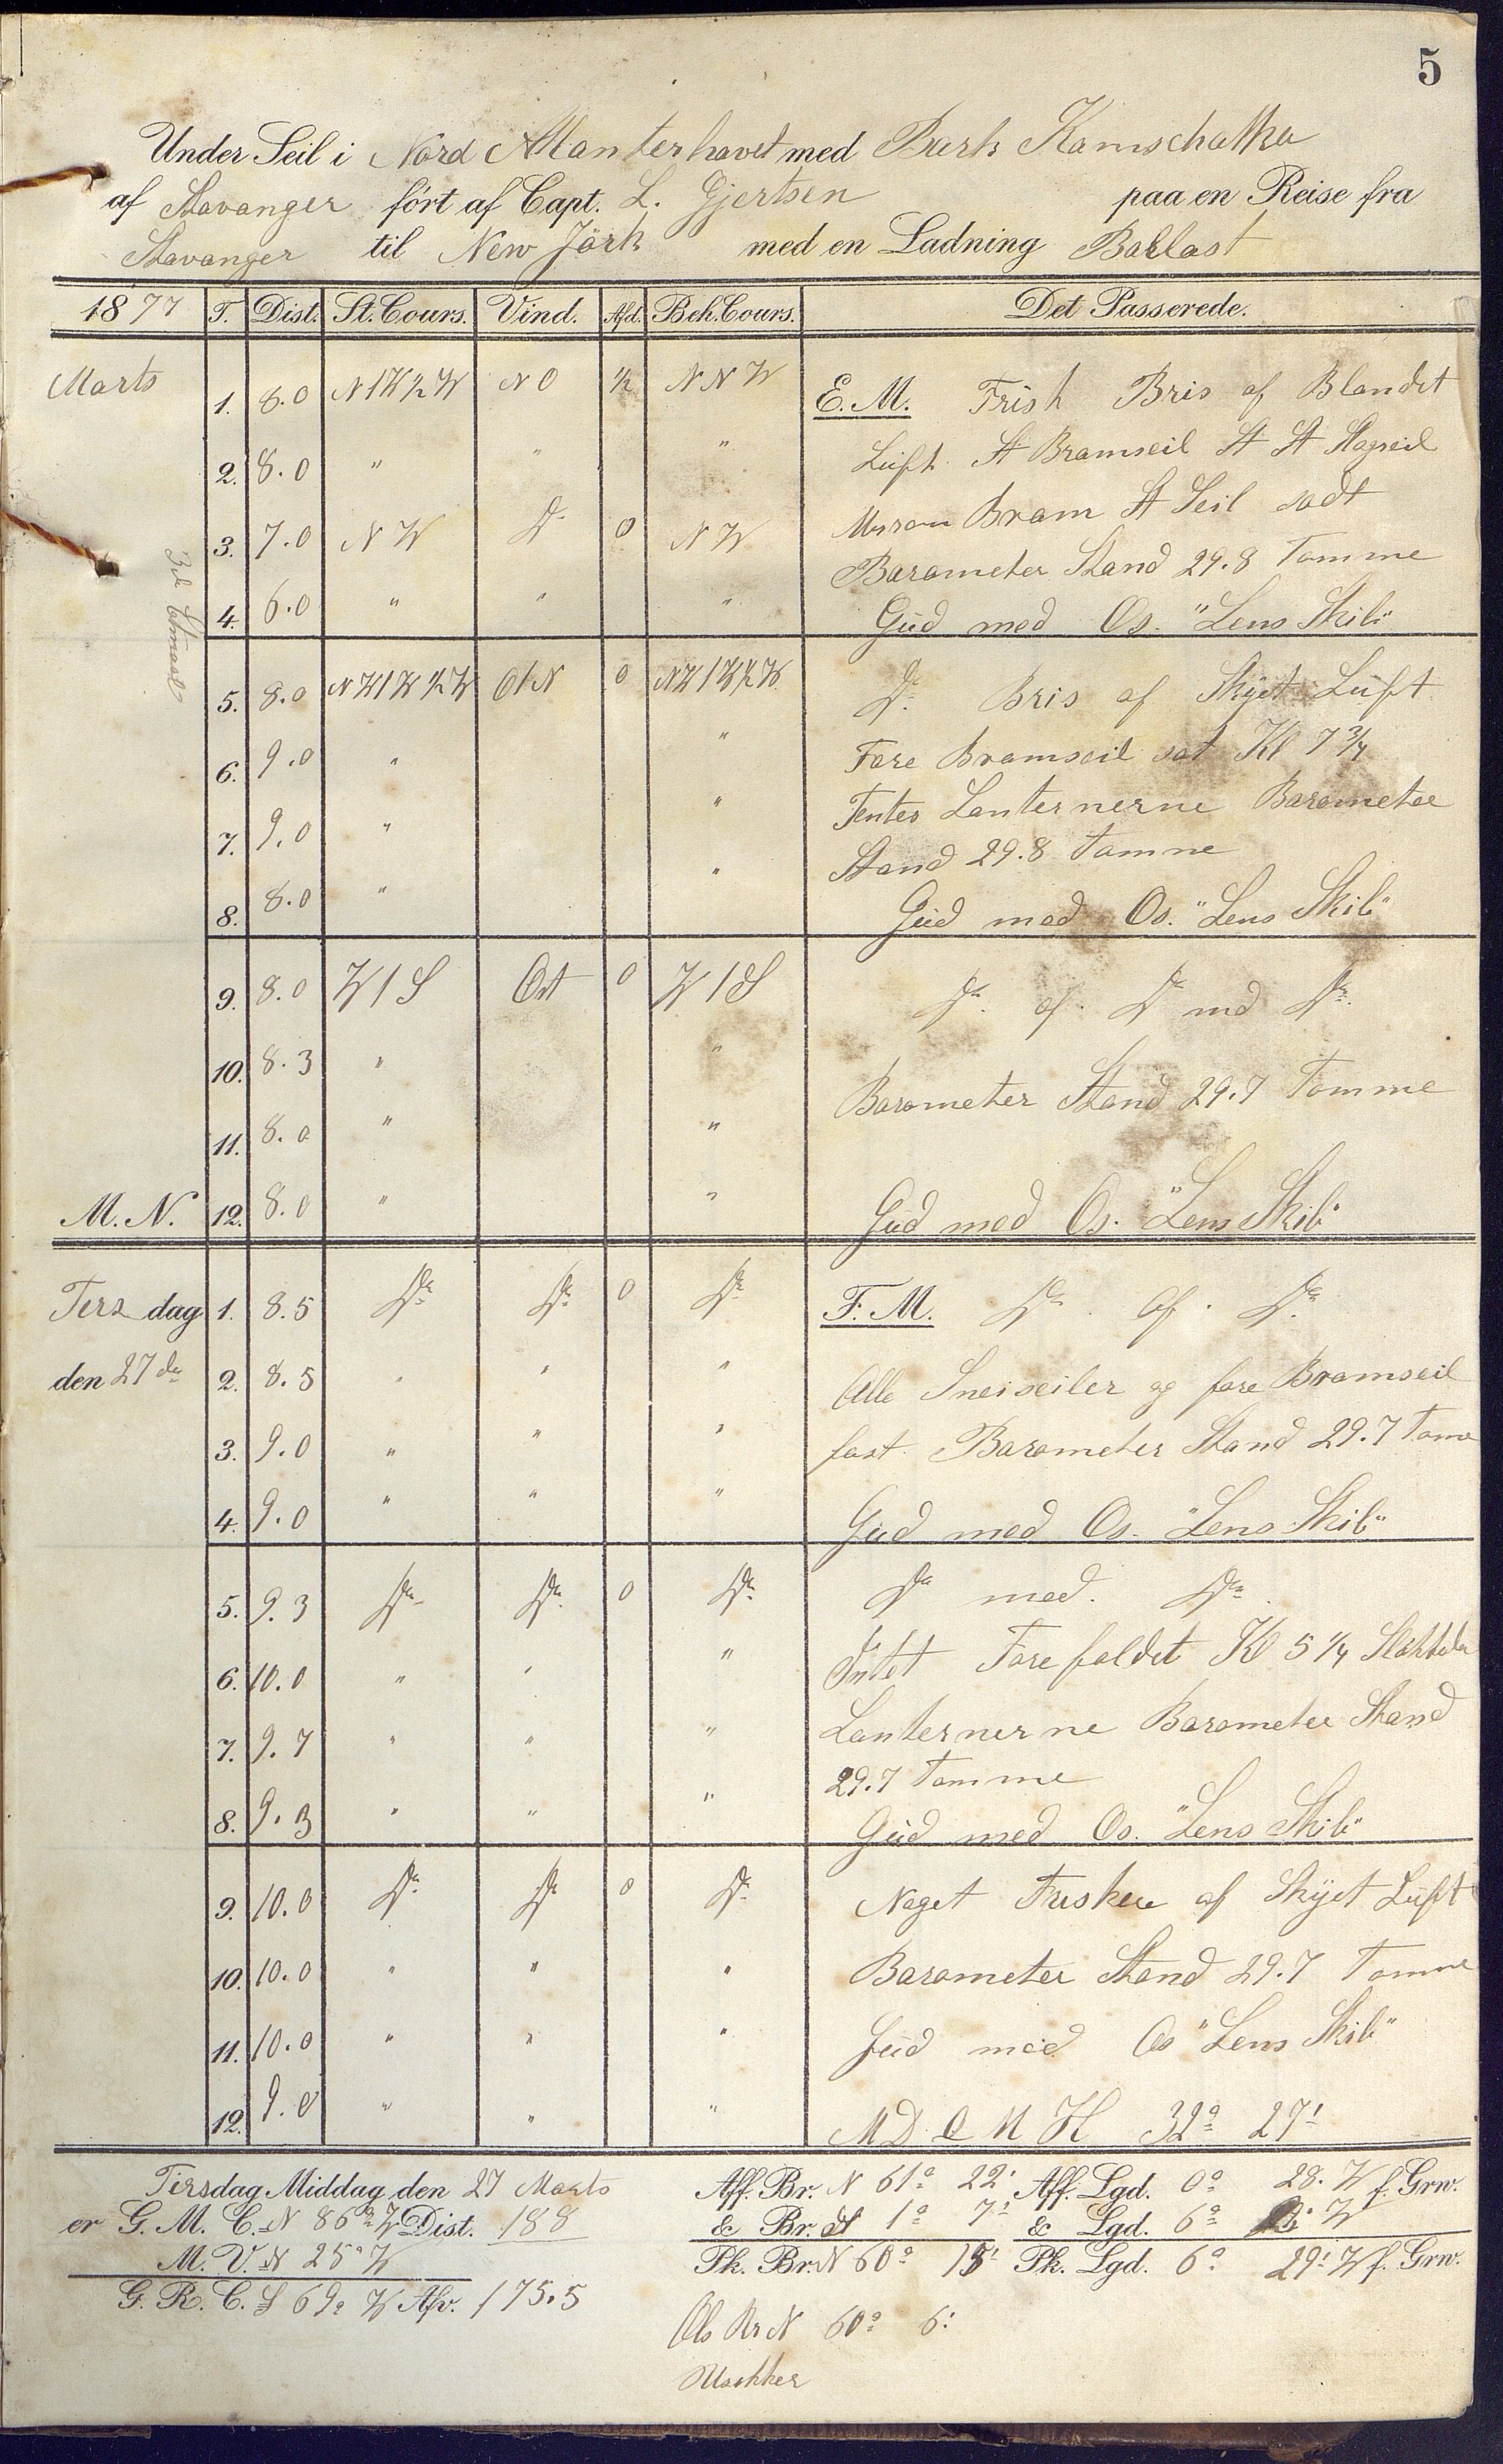 5
Under Seil i Nord Atlanterhavet med Bark Kamschatka
af Stavanger fört af Capt. L. Gjertsen paa en Reise fra
Stavanger til New Jörk med en Ladning Ballast
1877 T. Dist. St. Cours. Vind. Afd. Beh. Cours. Det Passerede.
Marts 1. 8.0 N1W½W NO ½ NNW E.M. Frisk Bris af Blandet
2. 8.0 " " " Lüft St Bramseil St St Stagseil
3. 7.0 NW Do 0 NW Bram St Seil sadt
Barometer Stand 29.8 Tomme
4. 6.0 " " " Güd med Os. "Lens Skib"
3de Etmaal
5. 8.0 NW1W½W O1N 0 NW1W½W Do Bris af Skÿet Lüft
6. 9.0 " " Fore Bramseil sat Kl 7¾
7. 9.0 " " Tentes Lanternerne Barometer
Stand 29.8 Tomme
8. 8.0 " " Güd med Os. "Lens Skib"
9. 8.0 W1S Ost 0 W1S Do af Do med Do
10. 8.3 " " Barometer Stand 29.7 Tomme
11. 8.0 " "
M.N. 12. 8.0 " " Güd med Os. "Lens Skib"
Tirsdag 1. 8.5 Do Do 0 Do F.M. Do af Do
den 27de 2. 8.5 " " " Alle Sneiseiler og fore Bramseil
3. 9.0 " " " fast Barometer Stand 29.7 Tome
4. 9.0 " " " Güd med Os. "Lens Skib"
5. 9.3 Do Do 0 Do Do med Do
6. 10.0 " " " Intet Forefaldet Kl 5¼
7. 9.7 " " " Lanternerne Barometer Stand
29.7 Tomme
8. 9.3 " " " Güd med Os. "Lens Skib"
9. 10.0 Do Do 0 Do Noget Friskere af Skÿet Lüft
10. 10.0 " " " Barometer Stand 29.7 Tomme
11. 10.0 " " " Güd med Os "Lens Skib"
12. 9.0 " " " M D O M H 32° 27'
Tirsdag Middag den 27 Marts Aff. Br. N 61° 22' Aff. Lgd. 0° 28' W f. Grw.
er G. M. C. N 86° W Dist. 188 & Br. S 1° 7' & Lgd. 6° W
M. V. N 25° W Pk. Br. N 60° 15' Pk. Lgd. 6° 29' W f. Grw.
G. R. C. S 69° W Afv. 175.5
Obs Br N 60° 6'